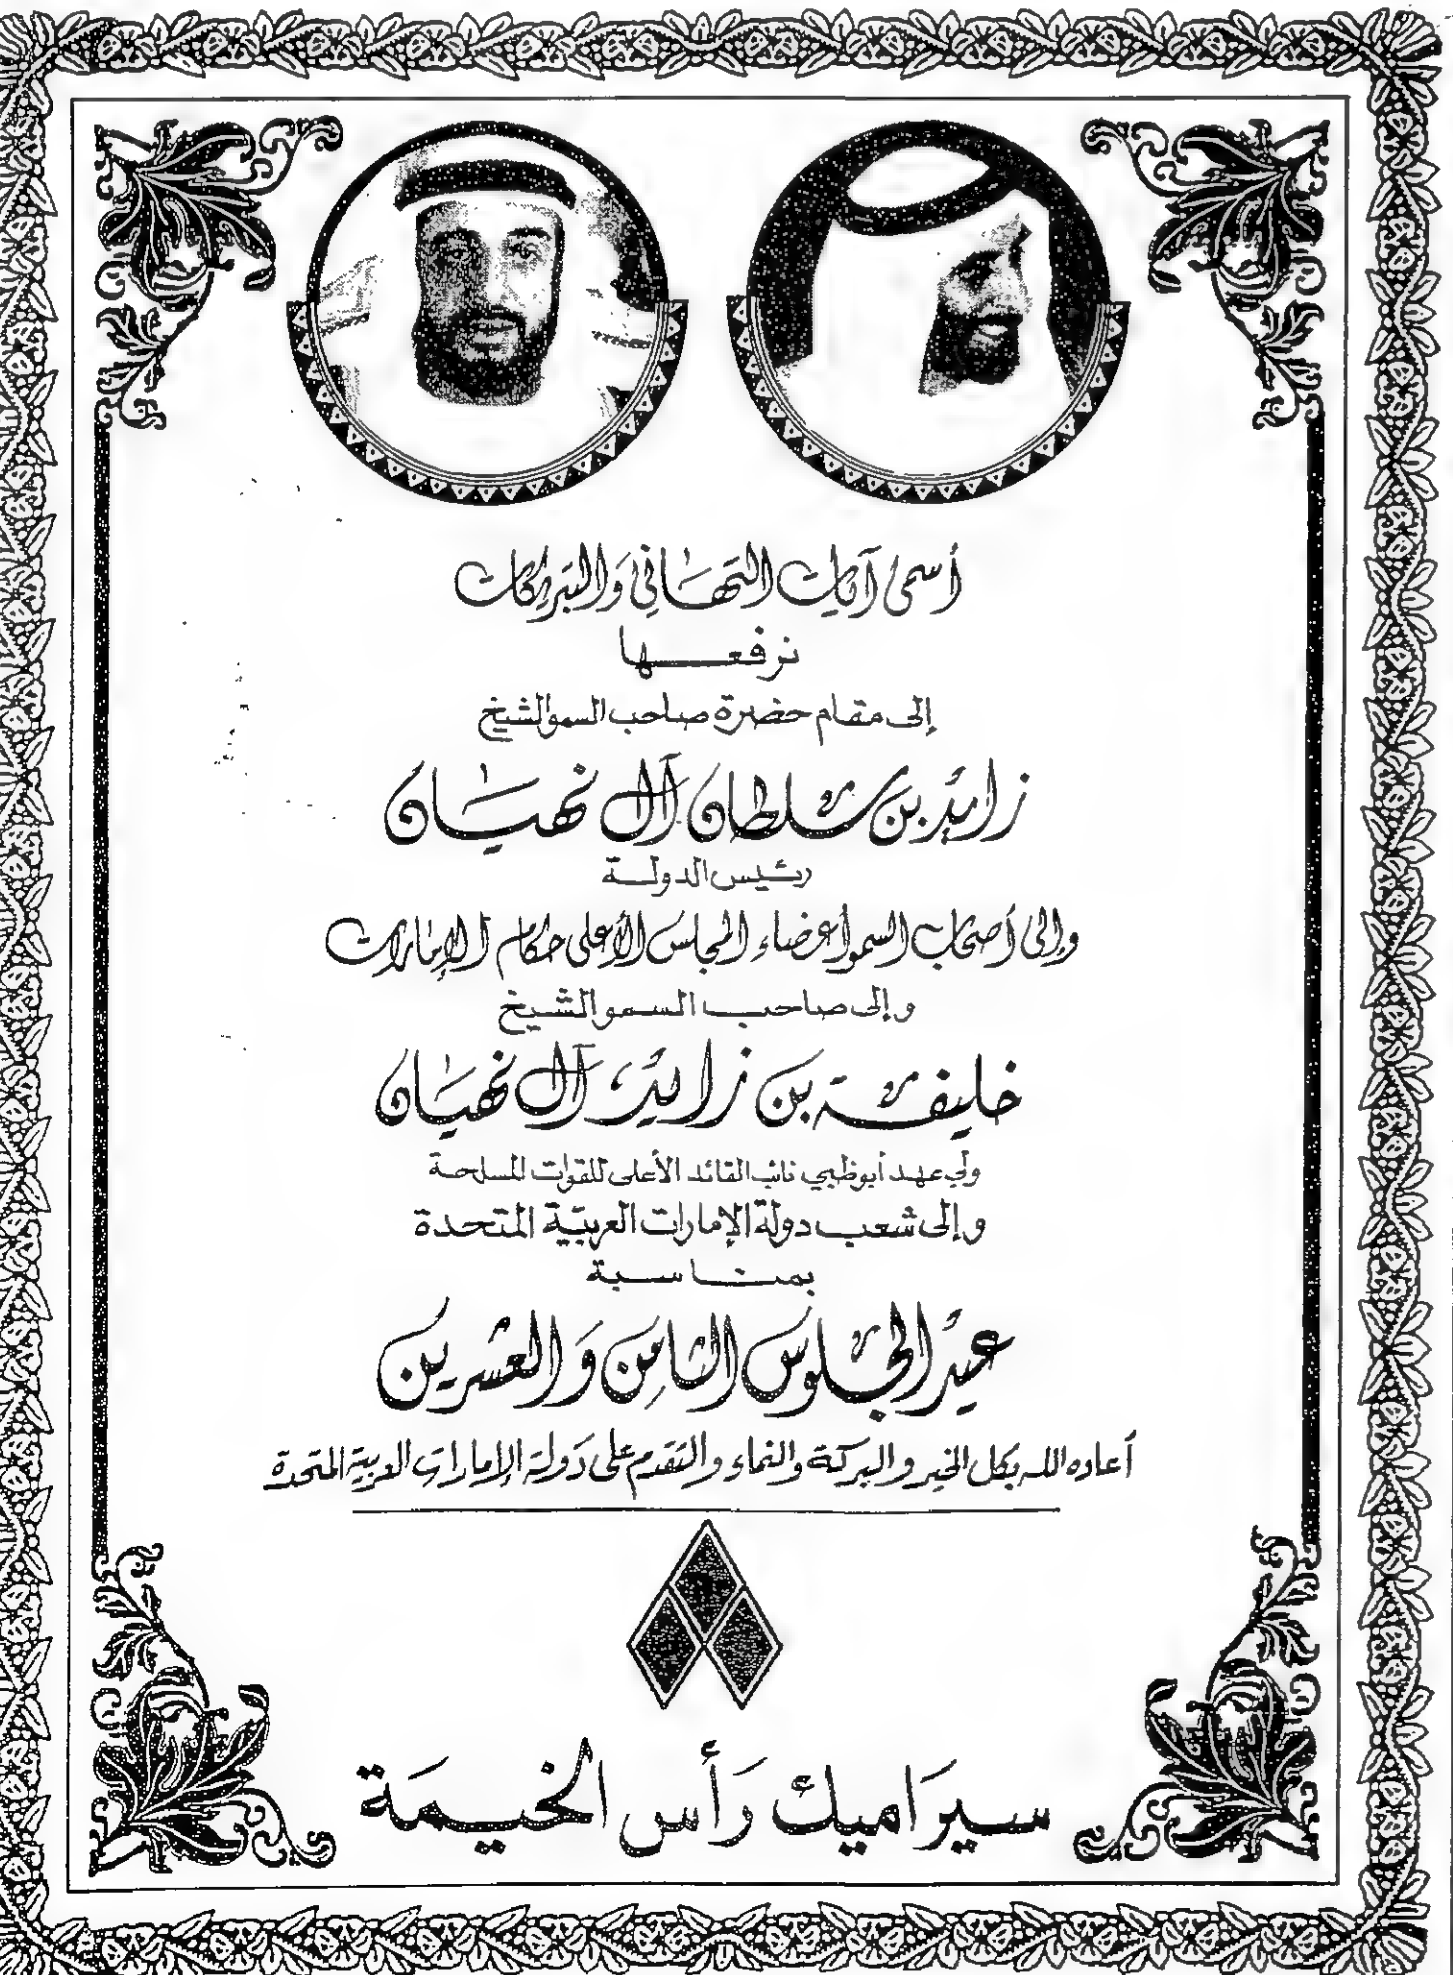 أسمى آيات التهاني والتبريكات
نرفعها
إلى مقام حضرة صاحب السمو الشيخ
زايد بن سلطان آل نهيان
رئيس الدولة
وإلى أصحاب السمو أعضاء المجلس الأعلى حكام الإمارات
وإلى صاحب السمو الشيخ
خليفة بن زايد آل نهيان
ولي عهد أبوظبي نائب القائد الأعلى للقوات المسلحة
وإلى شعب دولة الإمارات العربية المتحدة
بمناسبة
عيد الجلوس الثامن والعشرين
أعاده الله بكل الخير والبركة والنماء والتقدم على دولة الإمارات العربية المتحدة
سيراميك رأس الخيمة